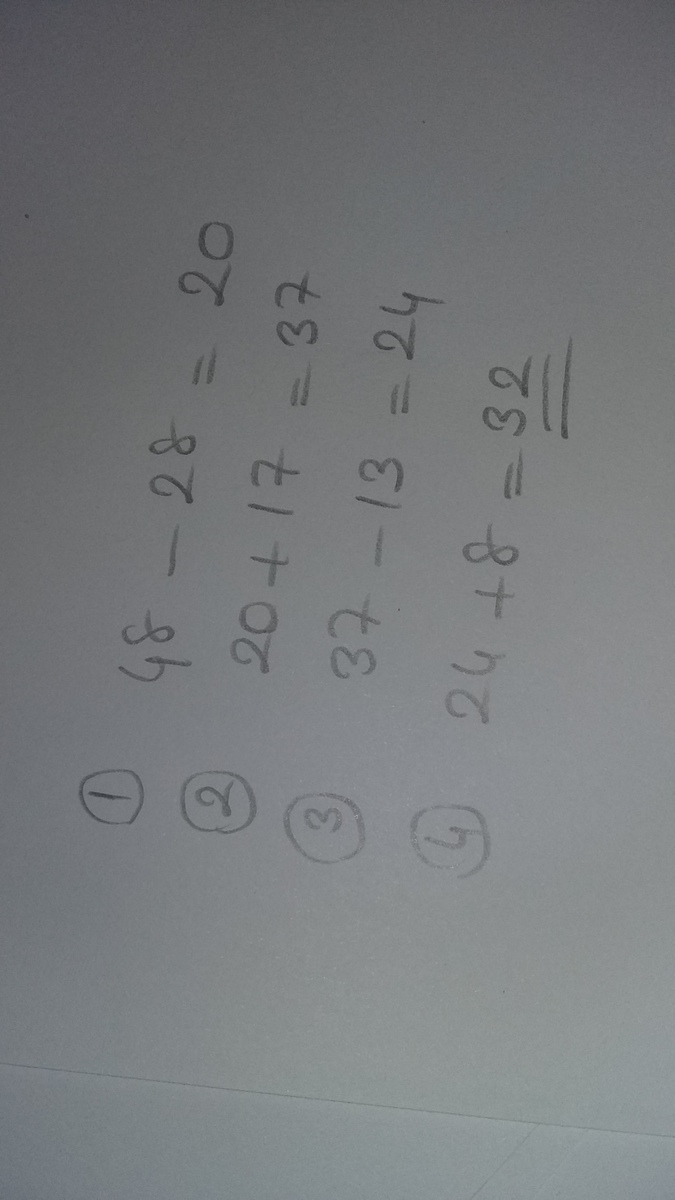 ① 48 - 28 = 20
② 20 + 17 = 37
③ 37 - 13 = 24
④ 24 + 8 = 32